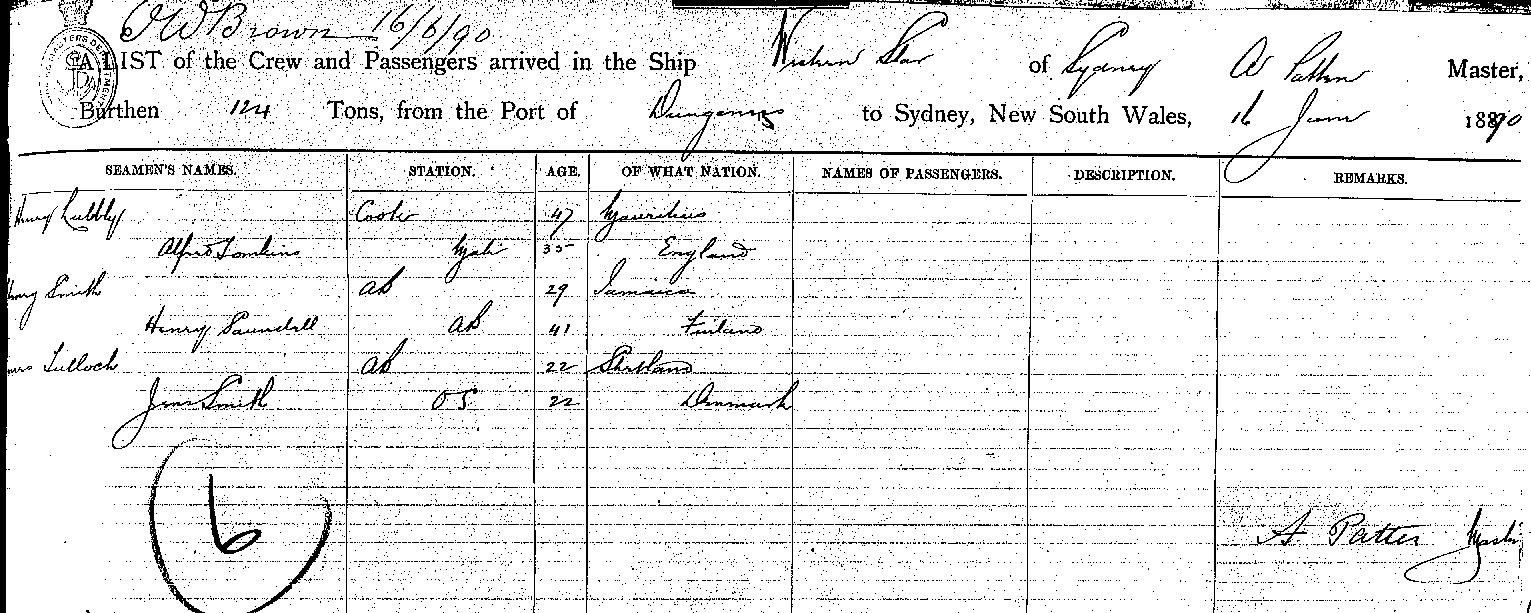 J W Brown 16/6/90
A LIST of the Crew and Passengers arrived in the Ship Western Star of Sydney A Patten Master,
Burthen 124 Tons, from the Port of Dungeness to Sydney, New South Wales, 16 June 1890
SEAMEN'S NAMES. STATION. AGE. OF WHAT NATION. NAMES OF PASSENGERS. DESCRIPTION. REMARKS.
Henry 47 Mauritius
Alfred Tomkins Mate 35 England
Smith AB 29 Jamaica
Henry AB 41 Finland
Tulloch AB 22 Shetland
Smith OS 22 Denmark
6
A Patten Master